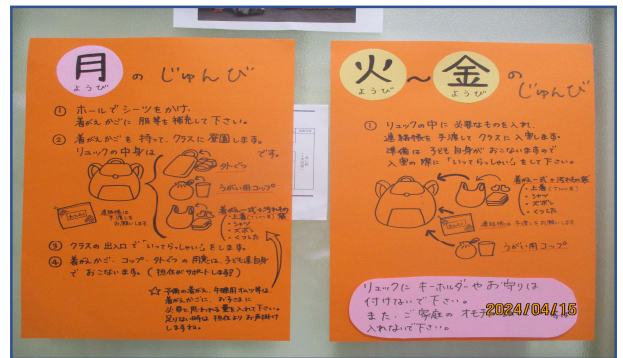 月 の じゅんび
ようび
① ホールでシーツをかけ、
着がえかごに 服等を 補充して下さい。
② 着がえかごを 持って、クラスに 登園します。
リュックの中身は です。
外ぐつ
うがい用コップ
着がえ一式+汚れもの袋
・上着
・シャツ
・ズボン
・くつした
連絡帳は
手渡しで
お願いします
③ クラスの 出入口で「いってらっしゃい」をします。
④ 着がえかご・コップ・外ぐつ の 用意は、子ども達自身
で おこないます。(担任がサポートします)
☆ 予備の着がえ、午睡用オムツ等は、
着がえかごに、お子さまに
必要と思われる量を入れて下さい。
足りない時は 担任より お声掛け
しますね。
火 〜 金 の
ようび ようび
じゅんび
① リュックの中に 必要なものを入れ、
連絡帳を手渡して クラスに 入室します。
準備は 子ども自身が おこないますので
入室の際に「いってらっしゃい」をして下さい。
着がえ一式+汚れもの袋
・上着
・シャツ
・ズボン
・くつした
連絡帳は 手渡しで お願いします
うがい用コップ
リュックに キーホルダーや お守りは
付けないで下さい。
また、ご家庭の オモチャ
入れないで下さい。
2024/04/15